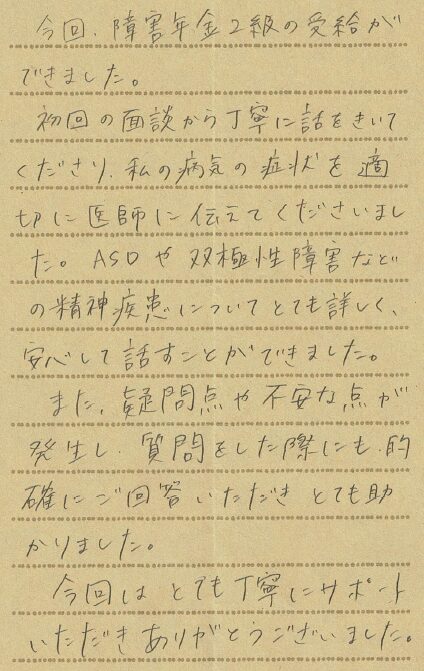 今回、障害年金2級の受給が
できました。
初回の面談から丁寧に話をきいて
くださり、私の病気の症状を適
切に医師に伝えてくださいまし
た。ASDや双極性障害など
の精神疾患についてとても詳しく、
安心して話すことができました。
また、疑問点や不安な点が
発生し、質問をした際にも、的
確にご回答いただきとても助
かりました。
今回はとても丁寧にサポート
いただきありがとうございました。